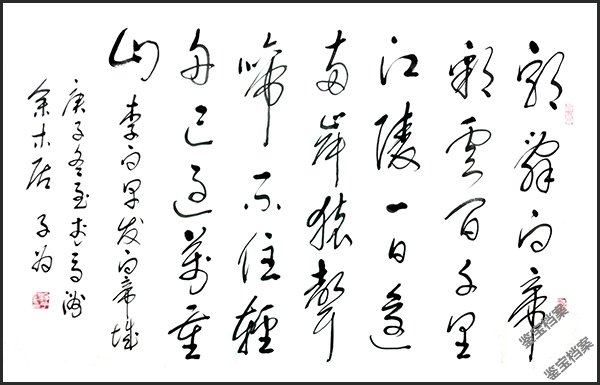 朝辭白帝
彩雲間千里
江陵一日還
兩岸猿聲
啼不住輕
舟已過萬重
山
李白早发白帝城
庚子冬至於高
余木居 子为
鉴宝档案
鉴宝档案